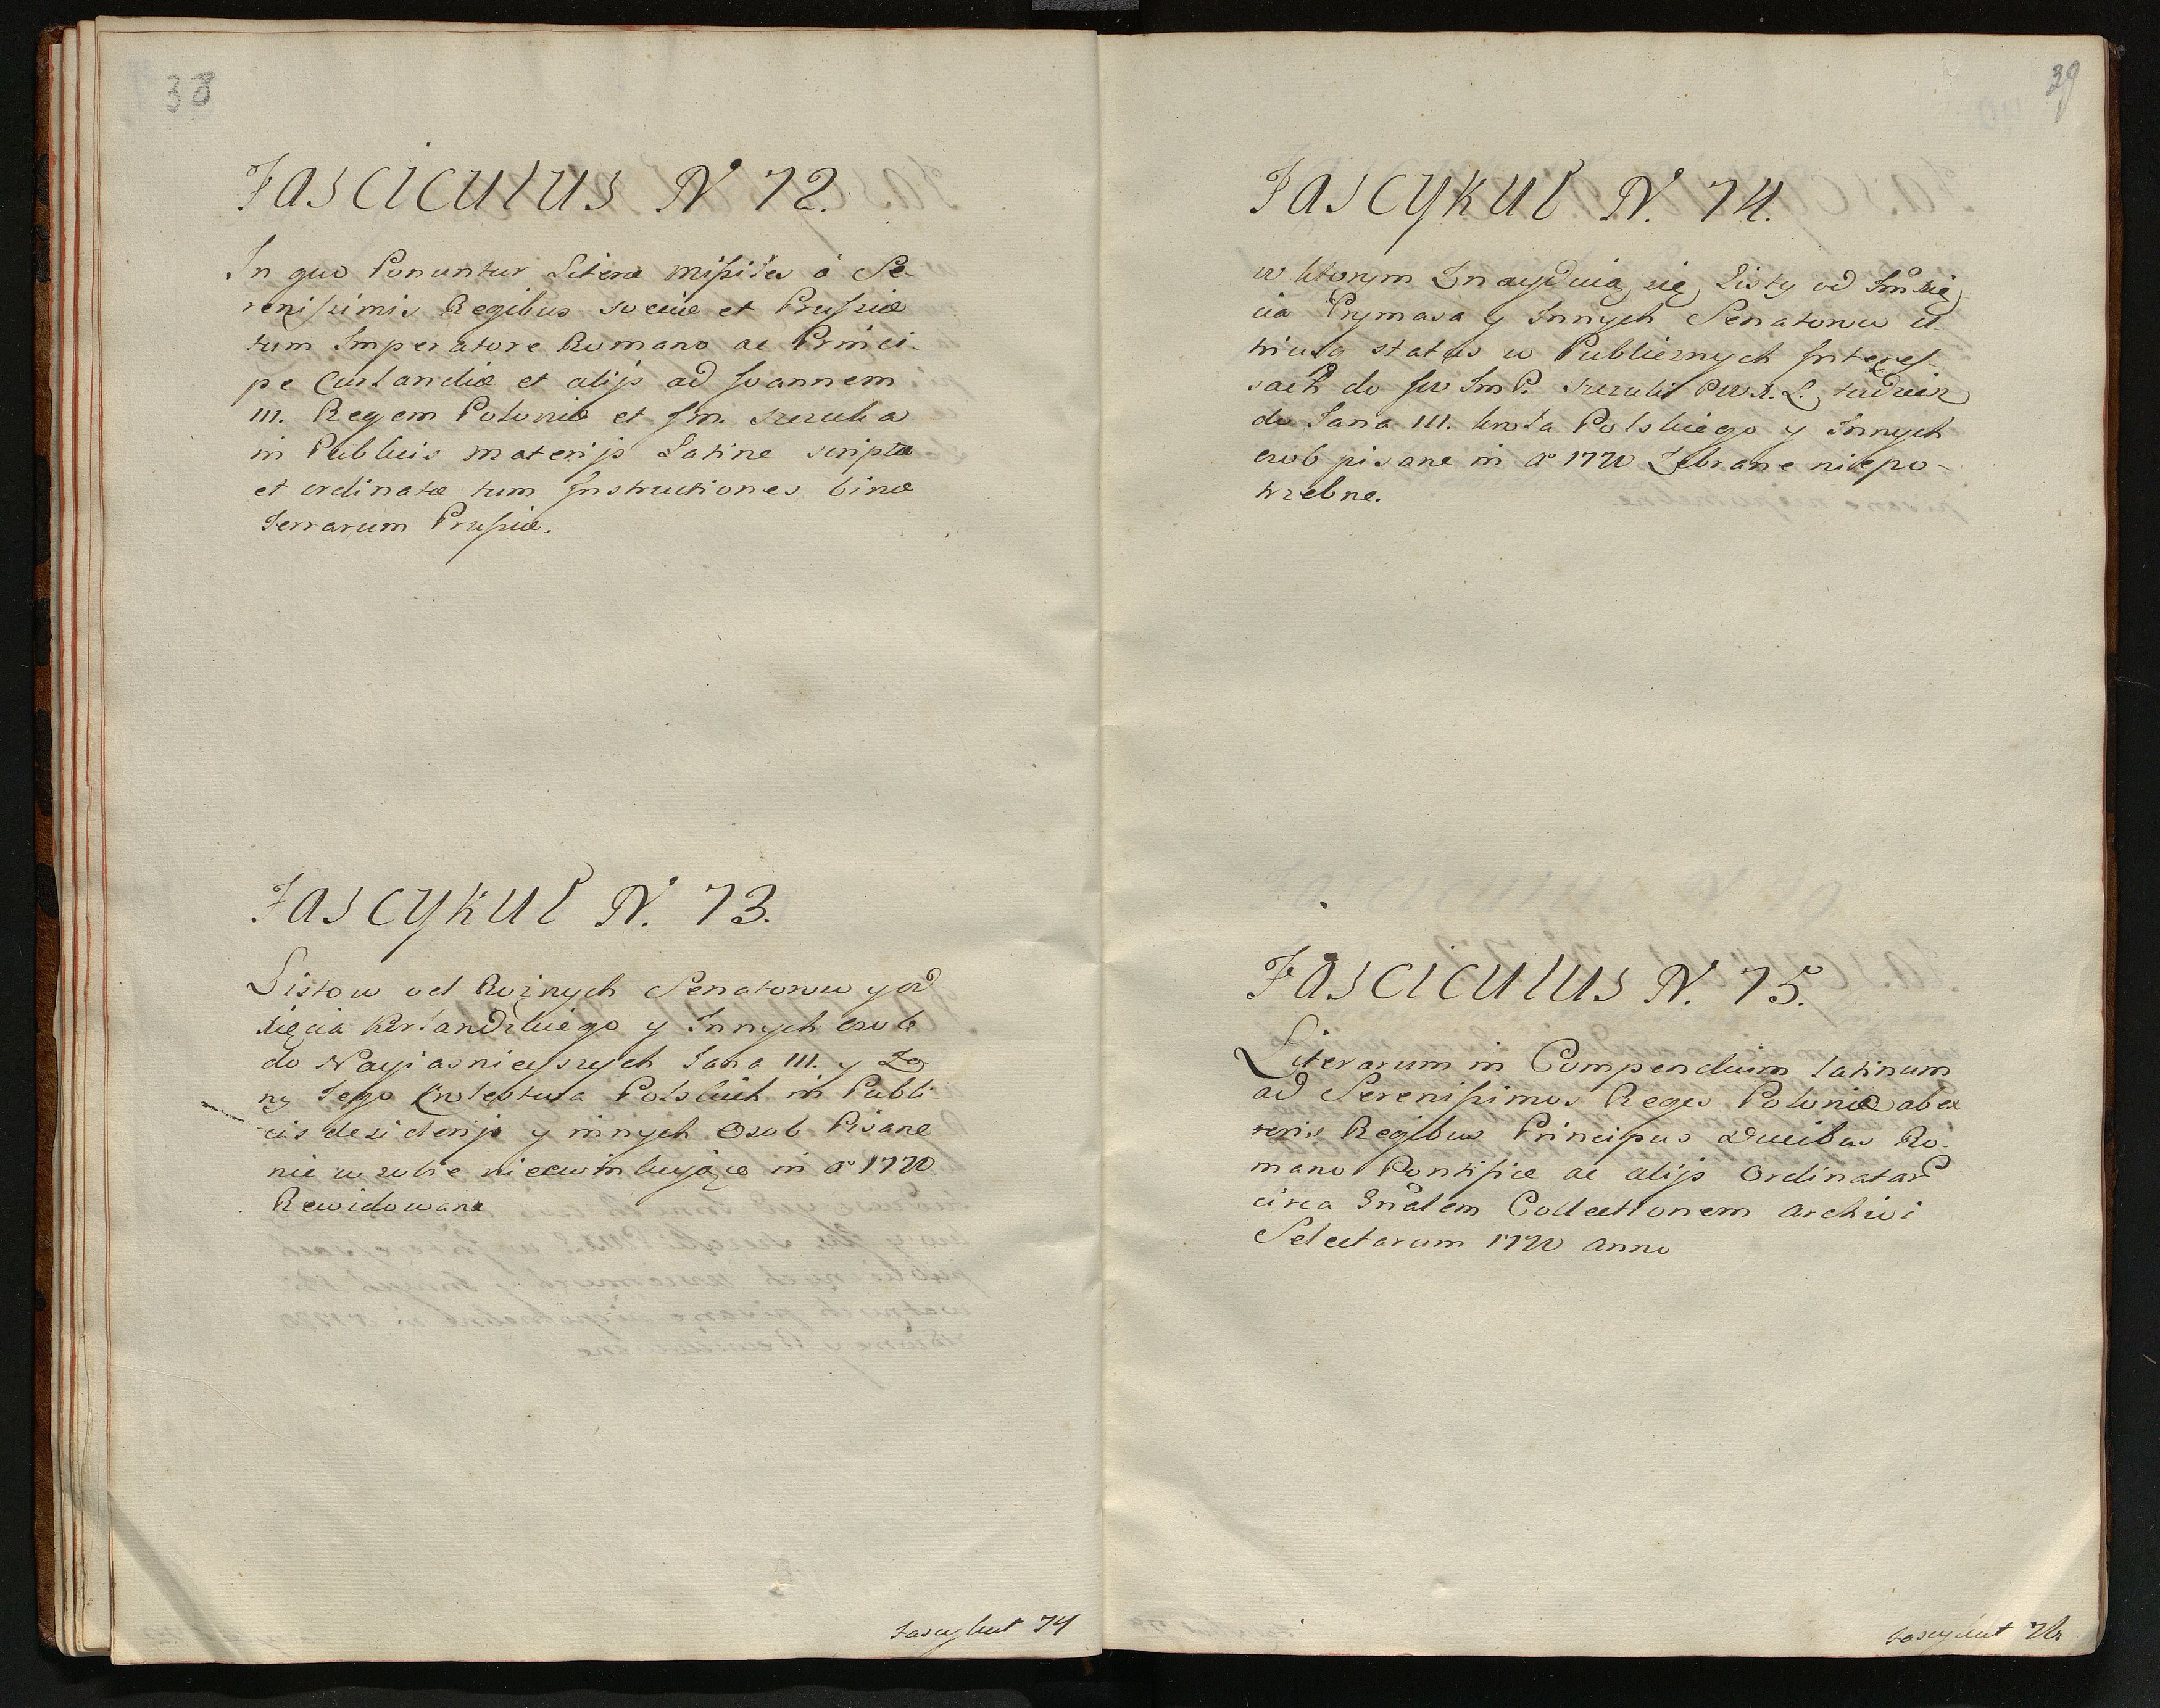 38
Fasciculus N 72.
In quo Ponuntur Literæ mißiles à Se-
renißimis Regibus Sveciæ et Prußiæ
tum Imperatore Romano ac Princi-
pe Curlandiæ et alijs ad Joannem
III. Regem Poloniæ et Jm. Szczuka
in Publicis materijs Latine scriptæ
et ordinatæ tum Instructiones binæ
Terrarum Prußiæ.
Fascykuł N. 73.
Listow od Rożnych Senatorow y od
Xięcia Kurlandzkiego y Innych osob
do Nayiasnieyszych Jana III. y Żo
ny Jego Krolestwa Polskich in Publi
cis desiderijs y innych Osob Pisane
nic w sobie niezawierające in Aº 1770
Rewidowane
Fascykuł 74
39
Fascykuł N. 74.
w ktorym Znayduią się Listy od Jm Xię
cia Prymasa y Innych Senatorow u-
triusq status w Publicznych Interes-
sach do Jw Jm P. Szczuki P W. X. L. tudzież
do Jana III. Krola Polskiego y Innych
osob pisane in Aº 1770 Zebrane niepo-
trzebne.
Fasciculus N. 75.
Literarum in Compendium latinum
ad Serenißimos Reges Poloniæ ab ex
teris Regibus Principus Ducibus Ro-
mano Pontifice ac alijs Ordinatar
circa Gnalem Collectionem Archivi
Selectarum 1770 Anno
Fascykuł 76